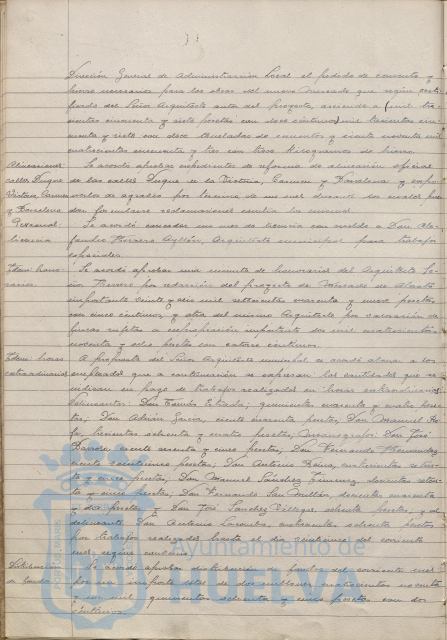 Dirección General de Administración Local el pedido de cemento y
hierro necesarios para las obras del nuevo Mercado que según certi-
ficado del Señor Arquitecto autor del proyecto, asciende a (mil tres-
cientos cincuenta y siete pesetas con doce céntimos) mil trescientos cin-
cuenta y siete con doce toneladas de cemento y ciento noventa mil
cuatrocientos cincuenta y tres con trece kilogramos de hierro.
Alineaciones
calles Duque
Victoria, Carmen
y Barcelona
Se acordó aprobar expedientes de reforma de alineación oficial
de las calles Duque de la Victoria, Carmen y Barcelona y expo-
nerlos al público por término de un mes durante su cual pue-
dan formularse reclamaciones contra los mismos.
Personal:
licencia
Se acordó conceder un mes de licencia con sueldo a Don Ale-
jandro Herrero Ayllón, Arquitecto municipal para trabajos
especiales.
Idem: hono-
rarios.
Se acordó aprobar una minuta de honorarios del Arquitecto Se-
ñor Herrero por redacción del proyecto de Mercado de Abasto
importante veinte y seis mil setecientas cuarenta y nueve pesetas
con cinco céntimos, y otra del mismo Arquitecto por valoración de
fincas sujetas a expropiación importante dos mil cuatrocientas
noventa y ocho pesetas con catorce céntimos.
Idem: horas
extraordinarias
A propuesta del Señor Arquitecto municipal se acordó abonar a los
empleados que a continuación se expresan las cantidades que se
indican en pago de trabajos realizados en horas extraordinarias:
Delineantes: Don Estrada; quinientas cuarenta y cuatro pese-
tas; Don Adrián García, ciento cuarenta pesetas; Don Manuel
trescientas ochenta y cuatro pesetas; Mecanógrafos: Don José
Barroso, ciento sesenta y cinco pesetas; Don Fernando Hernández
ciento veinticinco pesetas; Don Antonio cuatrocientas seten-
ta y cinco pesetas; Don Manuel Sánchez Jiménez, doscientas seten-
ta y cinco pesetas; Don Fernando San Millán, doscientas cuarenta
y dos pesetas y Don José Sánchez Villegas, ochenta pesetas; y al
delineante Don Antonio cuatrocientas ochenta pesetas
por trabajos realizados hasta el día veinticinco del corriente
mes, según
Distribución
de fondos
Se acordó aprobar distribución de fondos del corriente mes
por un importe total de dos millones cuatrocientas noventa
y un mil quinientas ochenta y cinco pesetas con dos
céntimos.
Ayuntamiento de
HUELVA